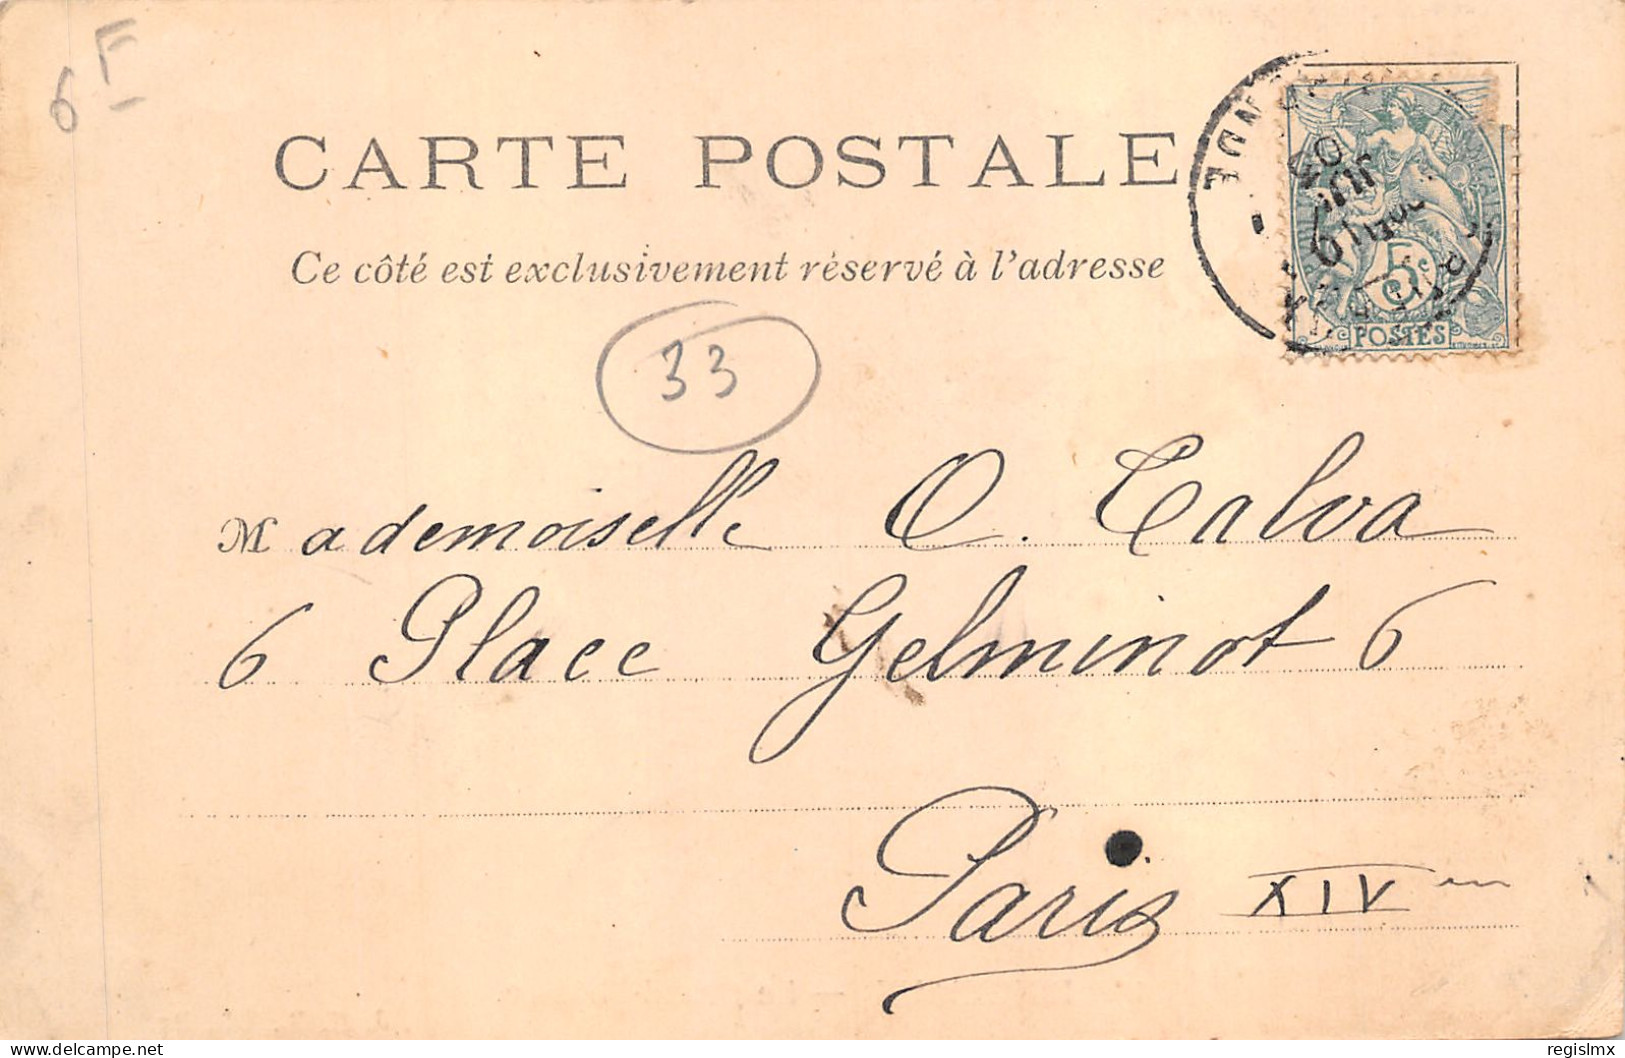 6F
CARTE POSTALE
Ce côté est exclusivement réservé à l'adresse
33
05
JUIL
5c
POSTES
Mademoiselle O. Calva
6 Place Gelminot 6
Paris XIV em
delcampe.net
regislmx